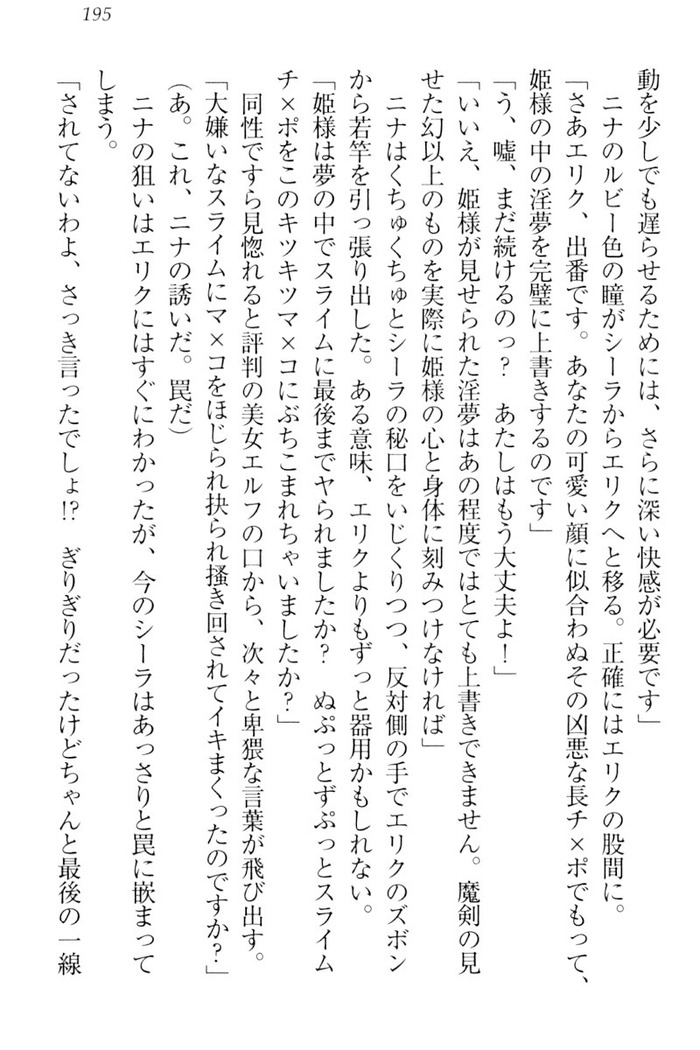 195
動を少しでも遅らせるためには、さらに深い快感が必要です」
ニナのルビー色の瞳がシーラからエリクへと移る。正確にはエリクの股間に。
「さあエリク、出番です。あなたの可愛い顔に似合わぬその凶悪な長チ×ポでもって、
姫様の中の淫夢を完璧に上書きするのです」
「う、嘘、まだ続けるのっ？　あたしはもう大丈夫よ！」
「いいえ、姫様が見せられた淫夢はあの程度ではとても上書きできません。魔剣の見
せた幻以上のものを実際に姫様の心と身体に刻みつけなければ」
ニナはくちゅくちゅとシーラの秘口をいじくりつつ、反対側の手でエリクのズボン
から若竿を引っ張り出した。ある意味、エリクよりもずっと器用かもしれない。
「姫様は夢の中でスライムに最後までヤられましたか？　ぬぷっとずぷっとスライム
チ×ポをこのキツキツマ×コにぶちこまれちゃいましたか？」
同性ですら見惚れると評判の美女エルフの口から、次々と卑猥な言葉が飛び出す。
「大嫌いなスライムにマ×コをほじられ抉られ掻き回されてイキまくったのですか？」
(あ。これ、ニナの誘いだ。罠だ)
ニナの狙いはエリクにはすぐにわかったが、今のシーラはあっさりと罠に嵌まって
しまう。
「されてないわよ、さっき言ったでしょ!?　ぎりぎりだったけどちゃんと最後の一線